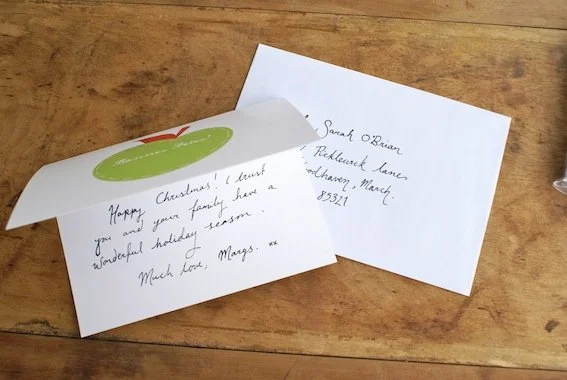 Happy Christmas! I trust
you and your family have a
wonderful holiday season.
Much love, Margs. xx
Sarah O'Brian
Picklewick lanes
odhaven, March.
85321